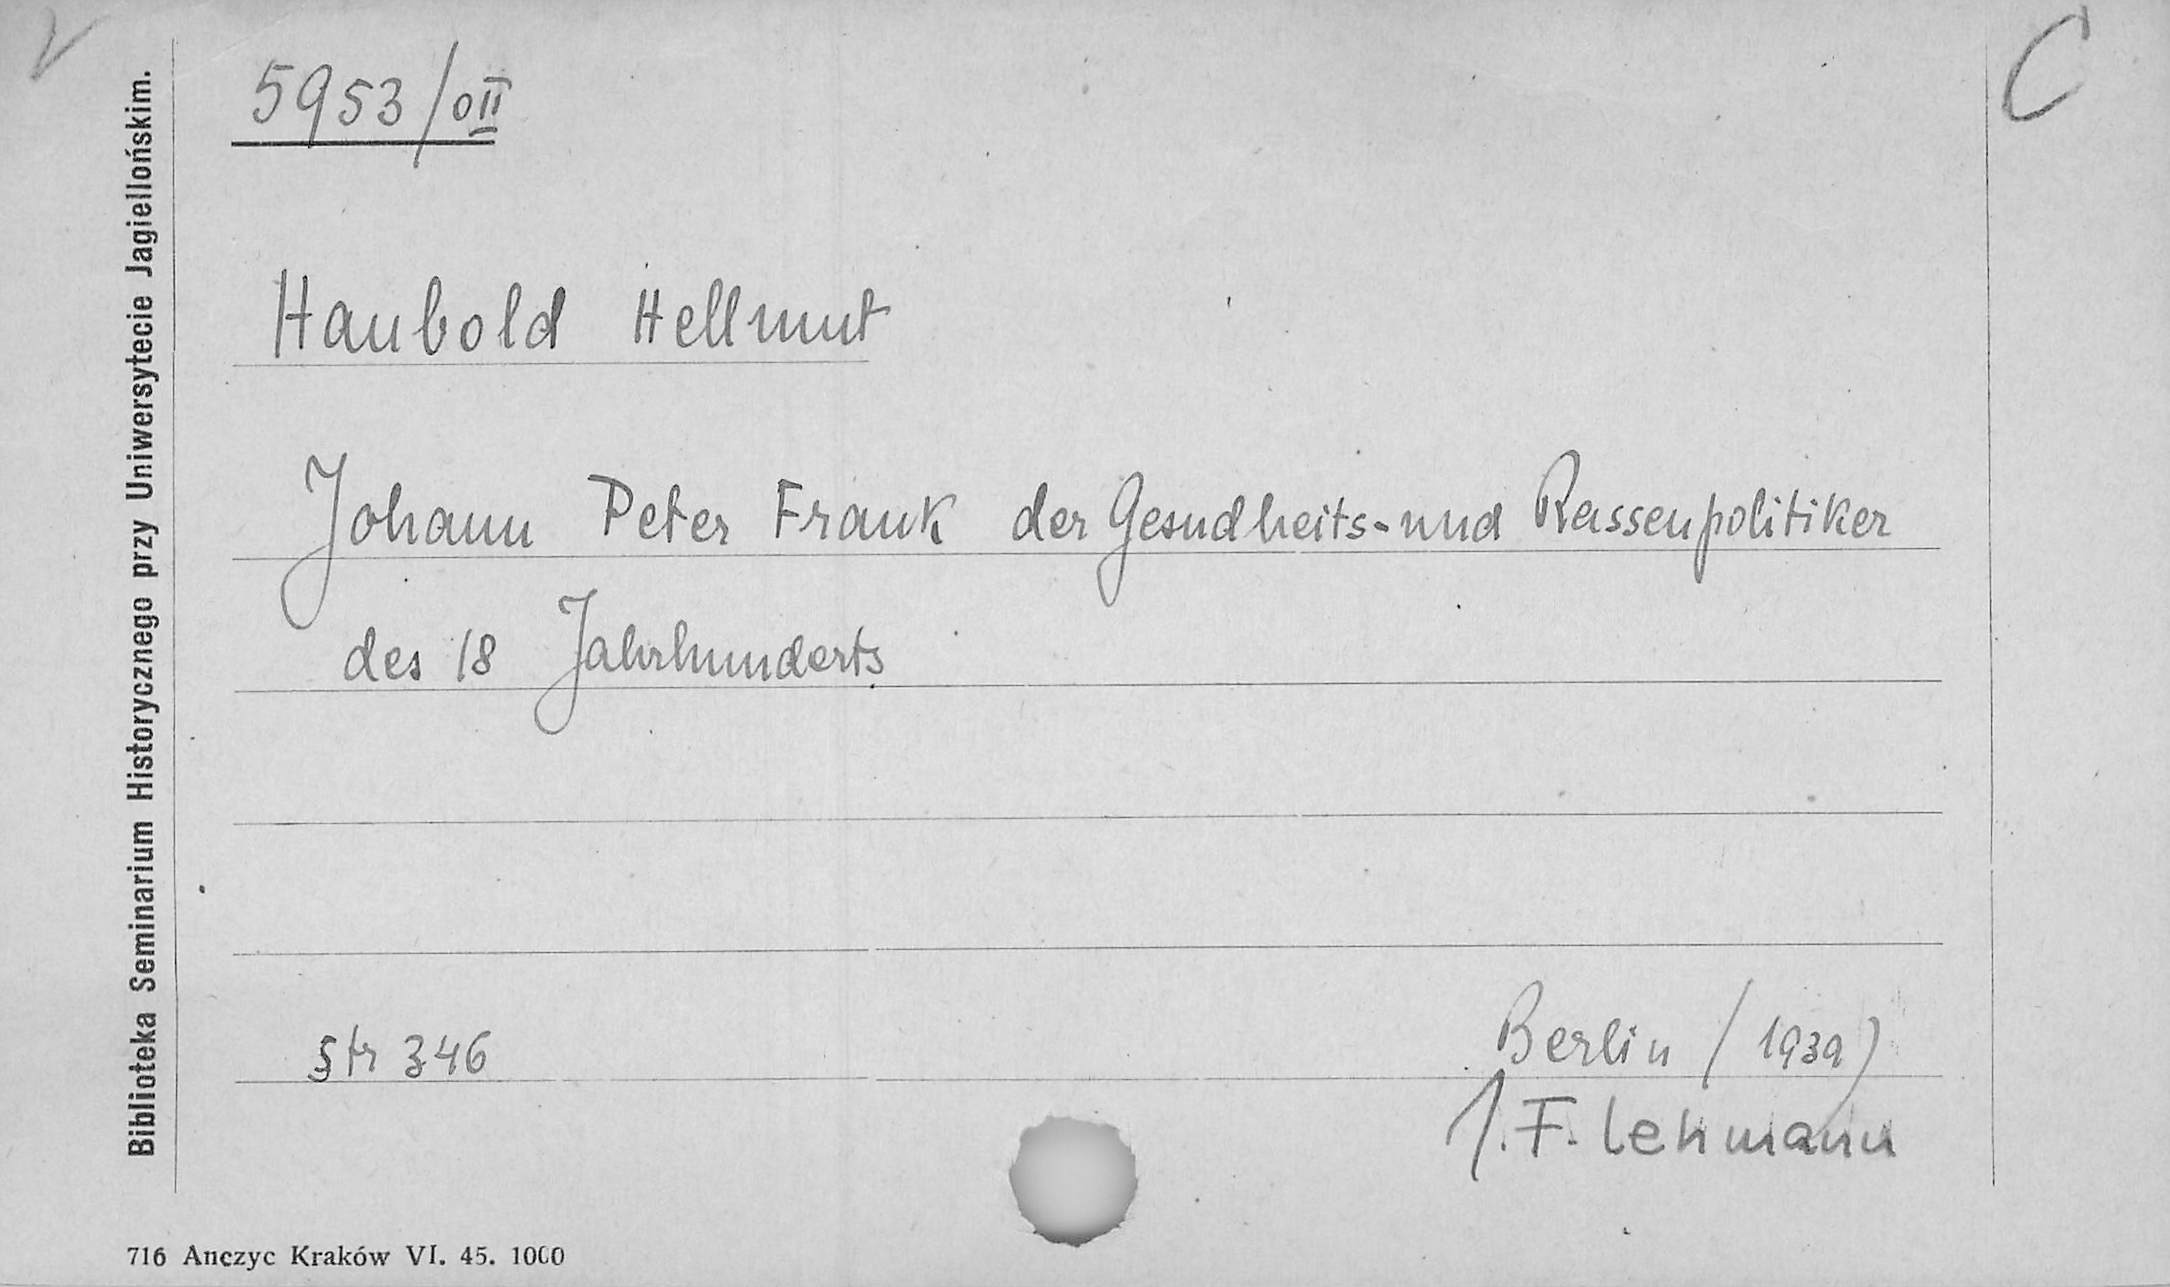 V
C
5953/0II
Haubold Hellmut
Johann Peter Frank der Gesudheits-und Rassenpolitiker
des 18 Jahrhunderts
Str 346
Berlin (1939)
J. F. Lehmann
Biblioteka Seminarium Historycznego przy Uniwersytecie Jagiellońskim.
716 Anczyc Kraków VI. 45. 1000